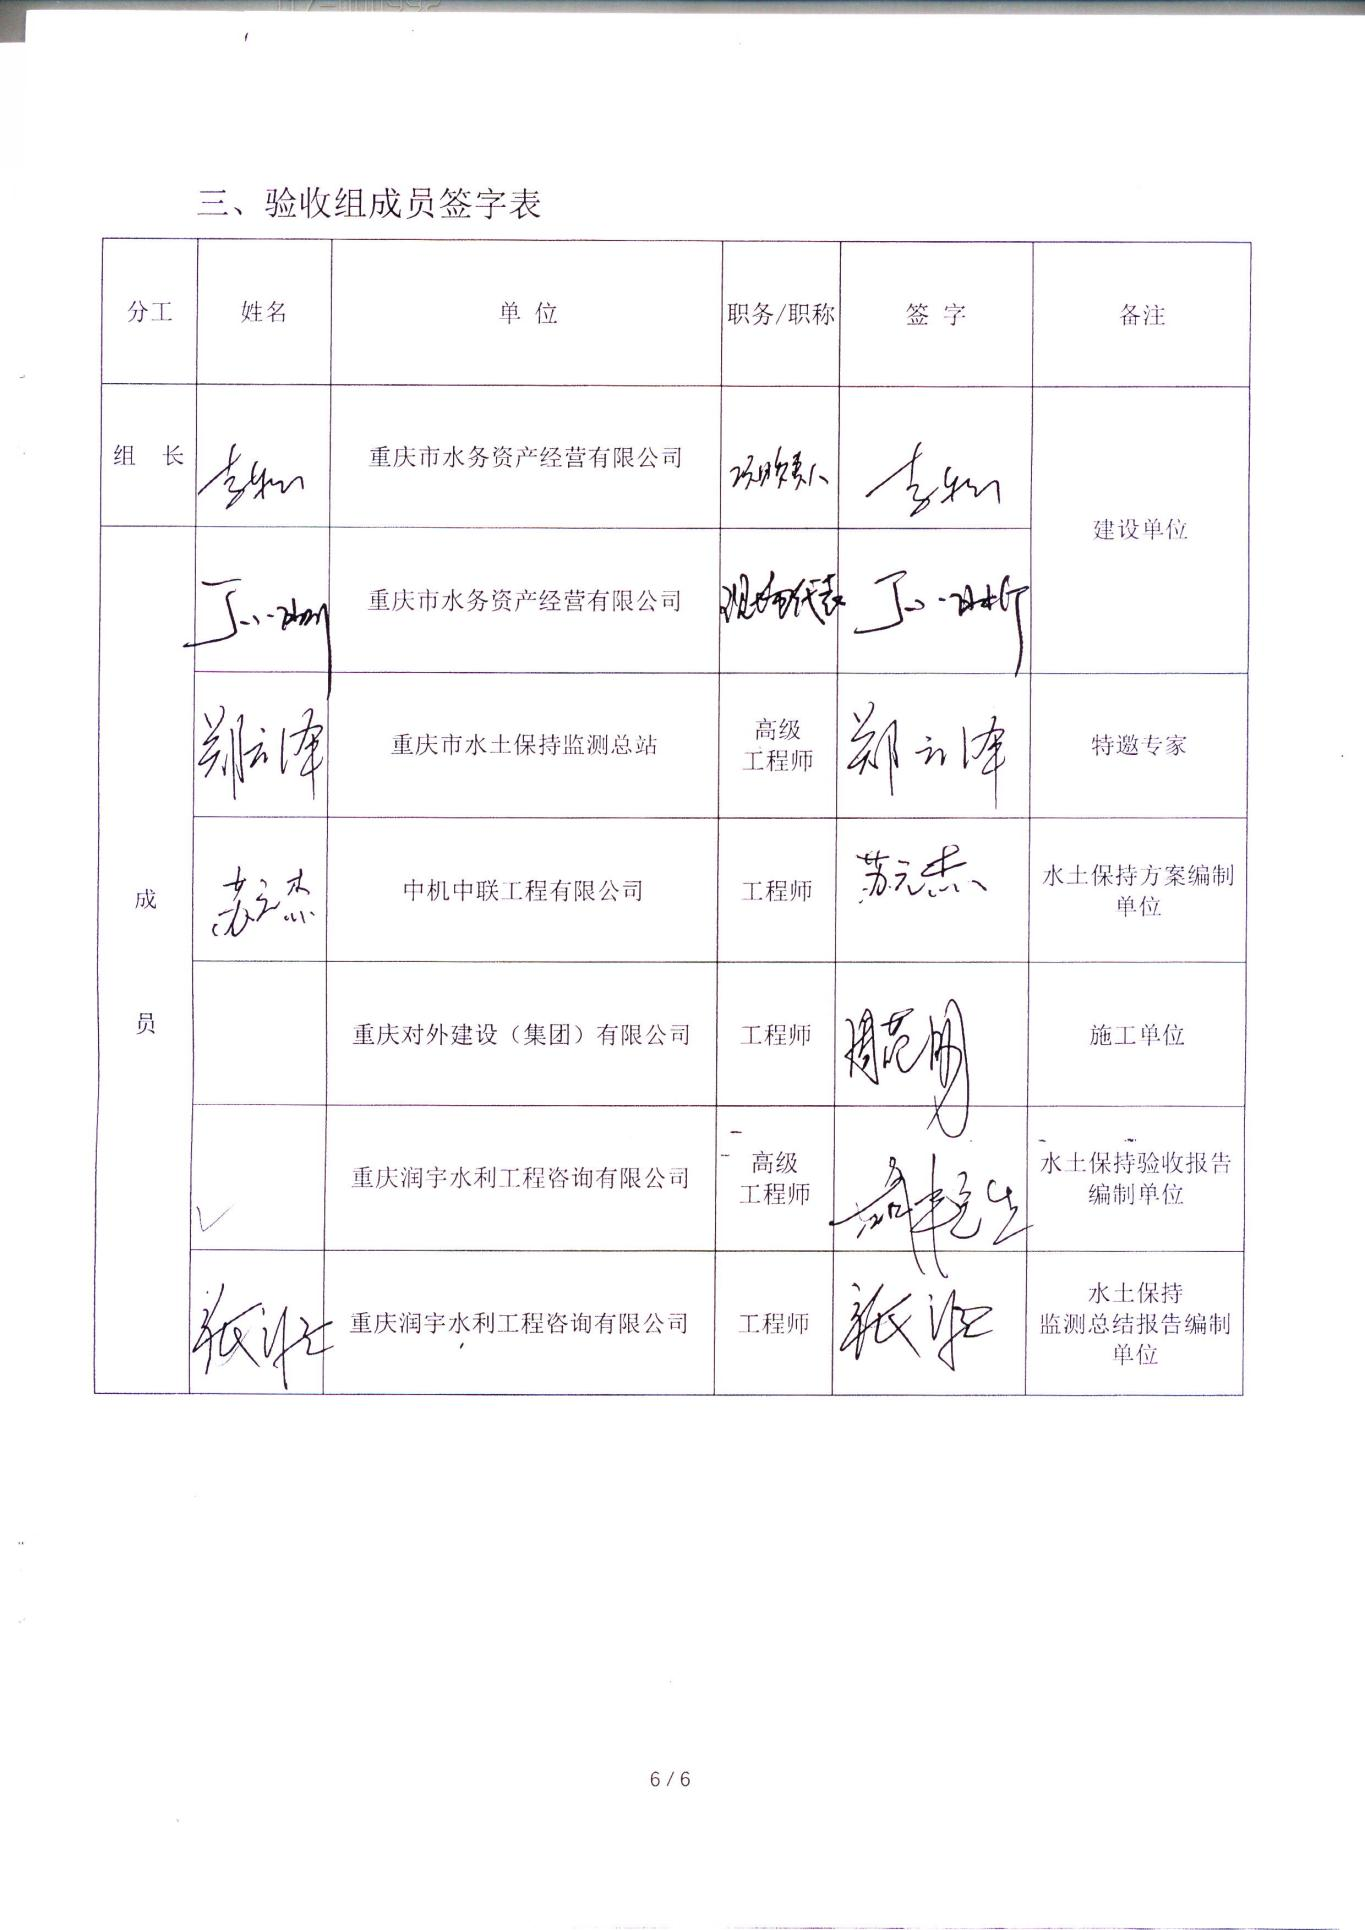 三、验收组成员签字表
分工 姓名 单 位 职务/职称 签 字 备注
组 长 重庆市水务资产经营有限公司 项目负责人
建设单位
重庆市水务资产经营有限公司 现场代表
郑云泽 重庆市水土保持监测总站 高级
工程师 郑云泽 特邀专家
成
员
苏元杰 中机中联工程有限公司 工程师 苏元杰 水土保持方案编制
单位
重庆对外建设（集团）有限公司 工程师 施工单位
重庆润宇水利工程咨询有限公司 高级
工程师 水土保持验收报告
编制单位
重庆润宇水利工程咨询有限公司 工程师 水土保持
监测总结报告编制
单位
6/6